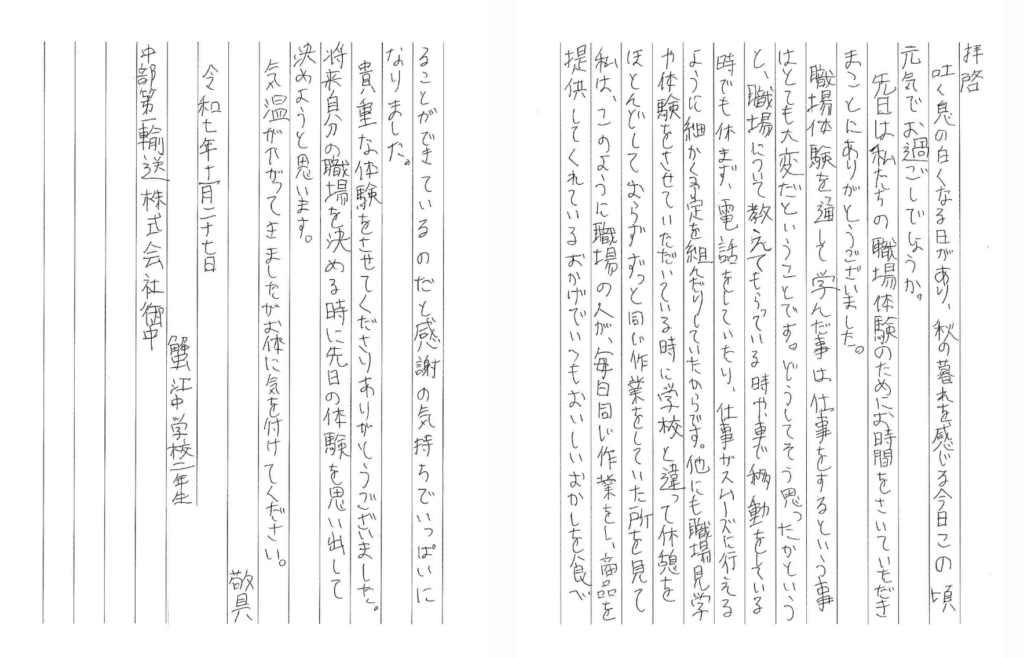 拝啓
吐く息の白くなる日があり、秋の暮れを感じる今日この頃
元気でお過ごしでしょうか。
先日は私たちの職場体験のためにお時間をさいていただき
まことにありがとうございました。
職場体験を通して学んだ事は仕事をするという事
はとても大変だということです。どうしてそう思ったかという
と、職場について教えてもらっている時や、車で移動をしている
時でも休まず、電話をしていたり、仕事がスムーズに行える
ように細かく予定を組んだりしていたからです。他にも職場見学
や体験をさせていただいている時に学校と違って休憩を
ほとんどしておらずずっと同じ作業をしていた所を見て
私は、このように職場の人が、毎日同じ作業をし、商品を
提供してくれているおかげでいつもおいしいおかしを食べ
ることができているのだと感謝の気持ちでいっぱいに
なりました。
貴重な体験をさせてくださりありがとうございました。
将来自分の職場を決める時に先日の体験を思い出して
決めようと思います。
気温が下がってきましたがお体に気を付けてください。
敬具
令和七年十一月二十七日
蟹江中学校二年生
中部第一輸送株式会社御中